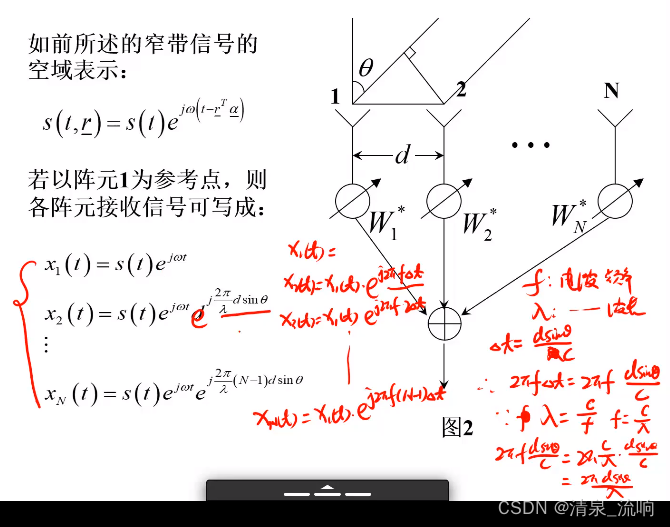 如前所述的窄带信号的
空域表示：
s(t,r) = s(t)e^{jω(t-r^T α)}
若以阵元1为参考点，则
各阵元接收信号可写成：
x_1(t) = s(t)e^{jωt}
x_2(t) = s(t)e^{jωt} e^{j\frac{2π}{λ}d sinθ}
⋮
x_N(t) = s(t)e^{jωt}e^{j\frac{2π}{λ}(N-1)d sinθ}
θ
1
2
N
d
…
W_1^*
W_2^*
W_N^*
图2
x_1(t)=
x_2(t)=x_1(t)·e^{j2πfΔt}
x_3(t)=x_1(t)·e^{j2πf2Δt}
x_N(t)=x_1(t)·e^{j2πf(N-1)Δt}
f:
λ:
Δt=\frac{dsinθ}{C}
∴ 2πfΔt=2πf \frac{dsinθ}{C}
∵ λ=\frac{C}{f} f=\frac{C}{λ}
2πf\frac{dsinθ}{C}=2π\frac{C}{λ}·\frac{dsinθ}{C}
=\frac{2πdsinθ}{λ}
CSDN @清泉_流响